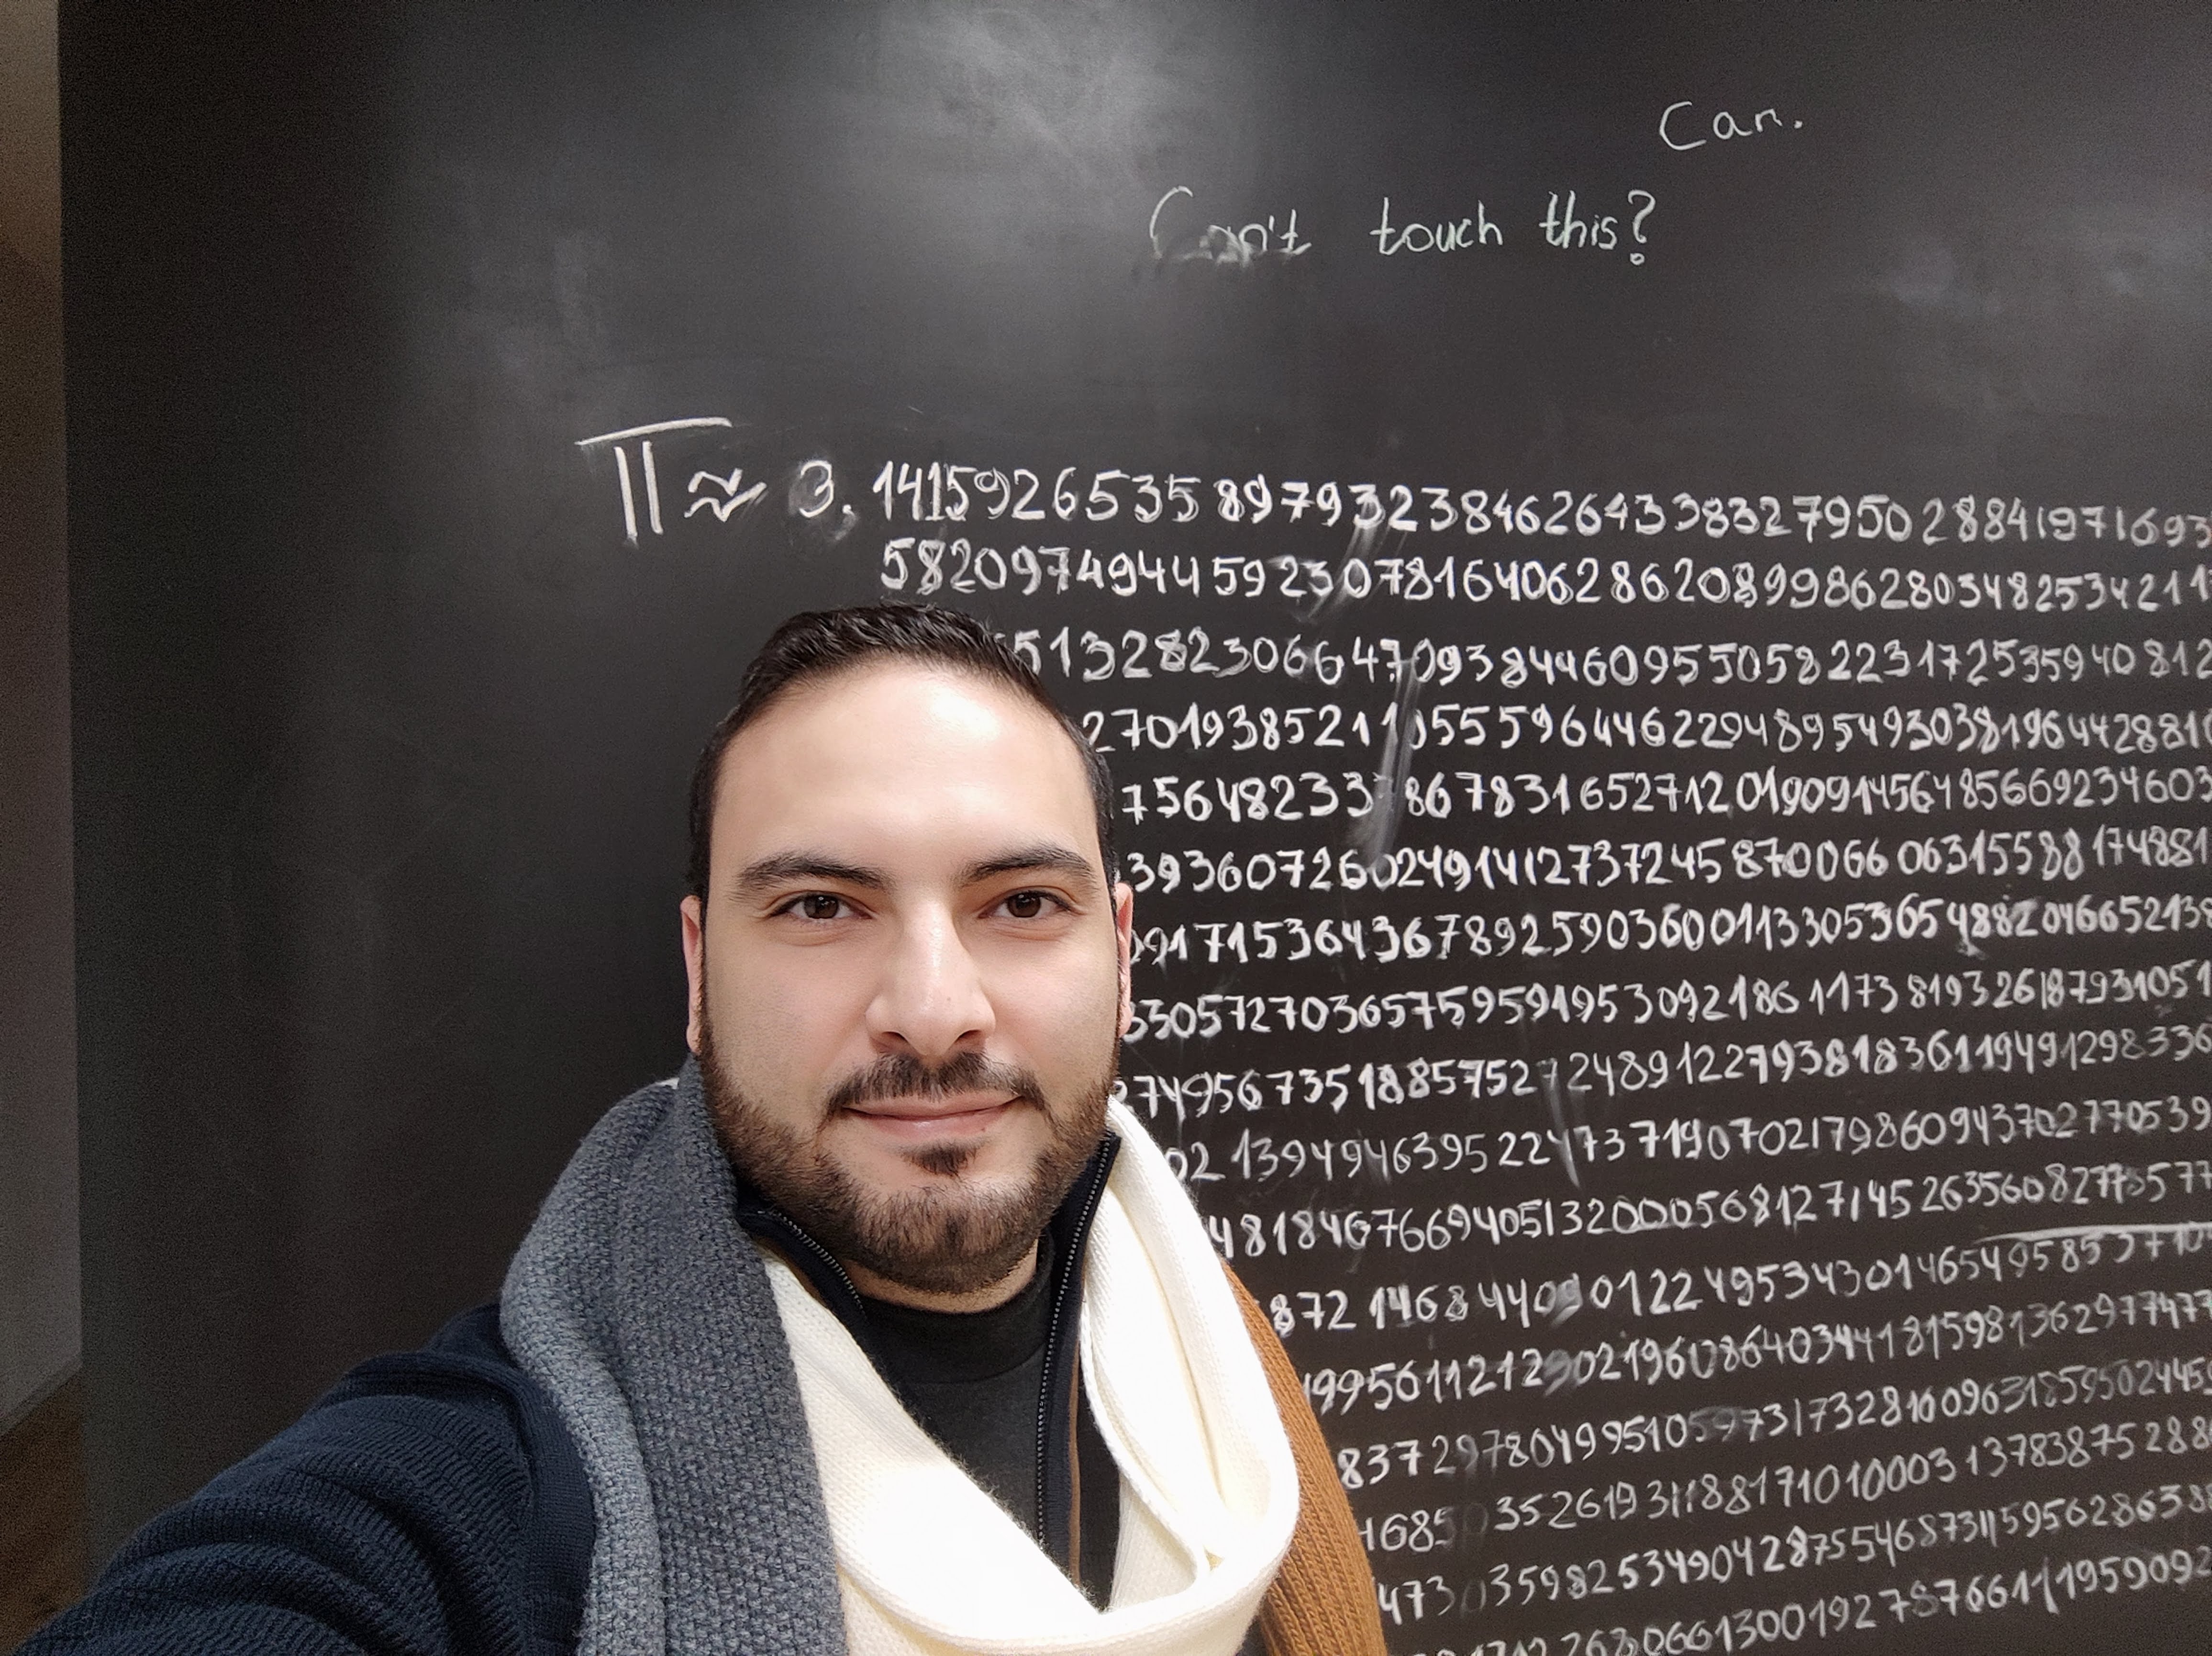 Can.
Can't touch this?
π ≈ 3.1415926535897932384626433832795028841971693
58209749445923078164062862089986280348253421
5132823066470938446095505822317253594081 2
27019385211055596446229489549303819644288 1
75648233 867831652712019091456485669234603
393607260249141273724587006606315588174881
917153643678925903600113305365488204665213
305727036575959195309218611738193261879310 51
74956735188575272489122793818361194912983 36
02139494639522473719070217986094370277053 9
4818467669405132000568127145263560827785 77
872146844090122495343014654958537 10
9956112129021960864034418159813629774 77
8372978049951059731732816096318595024 45
1685 352619311881710100031378387528 8
473 0359825349042875546873115956286 38